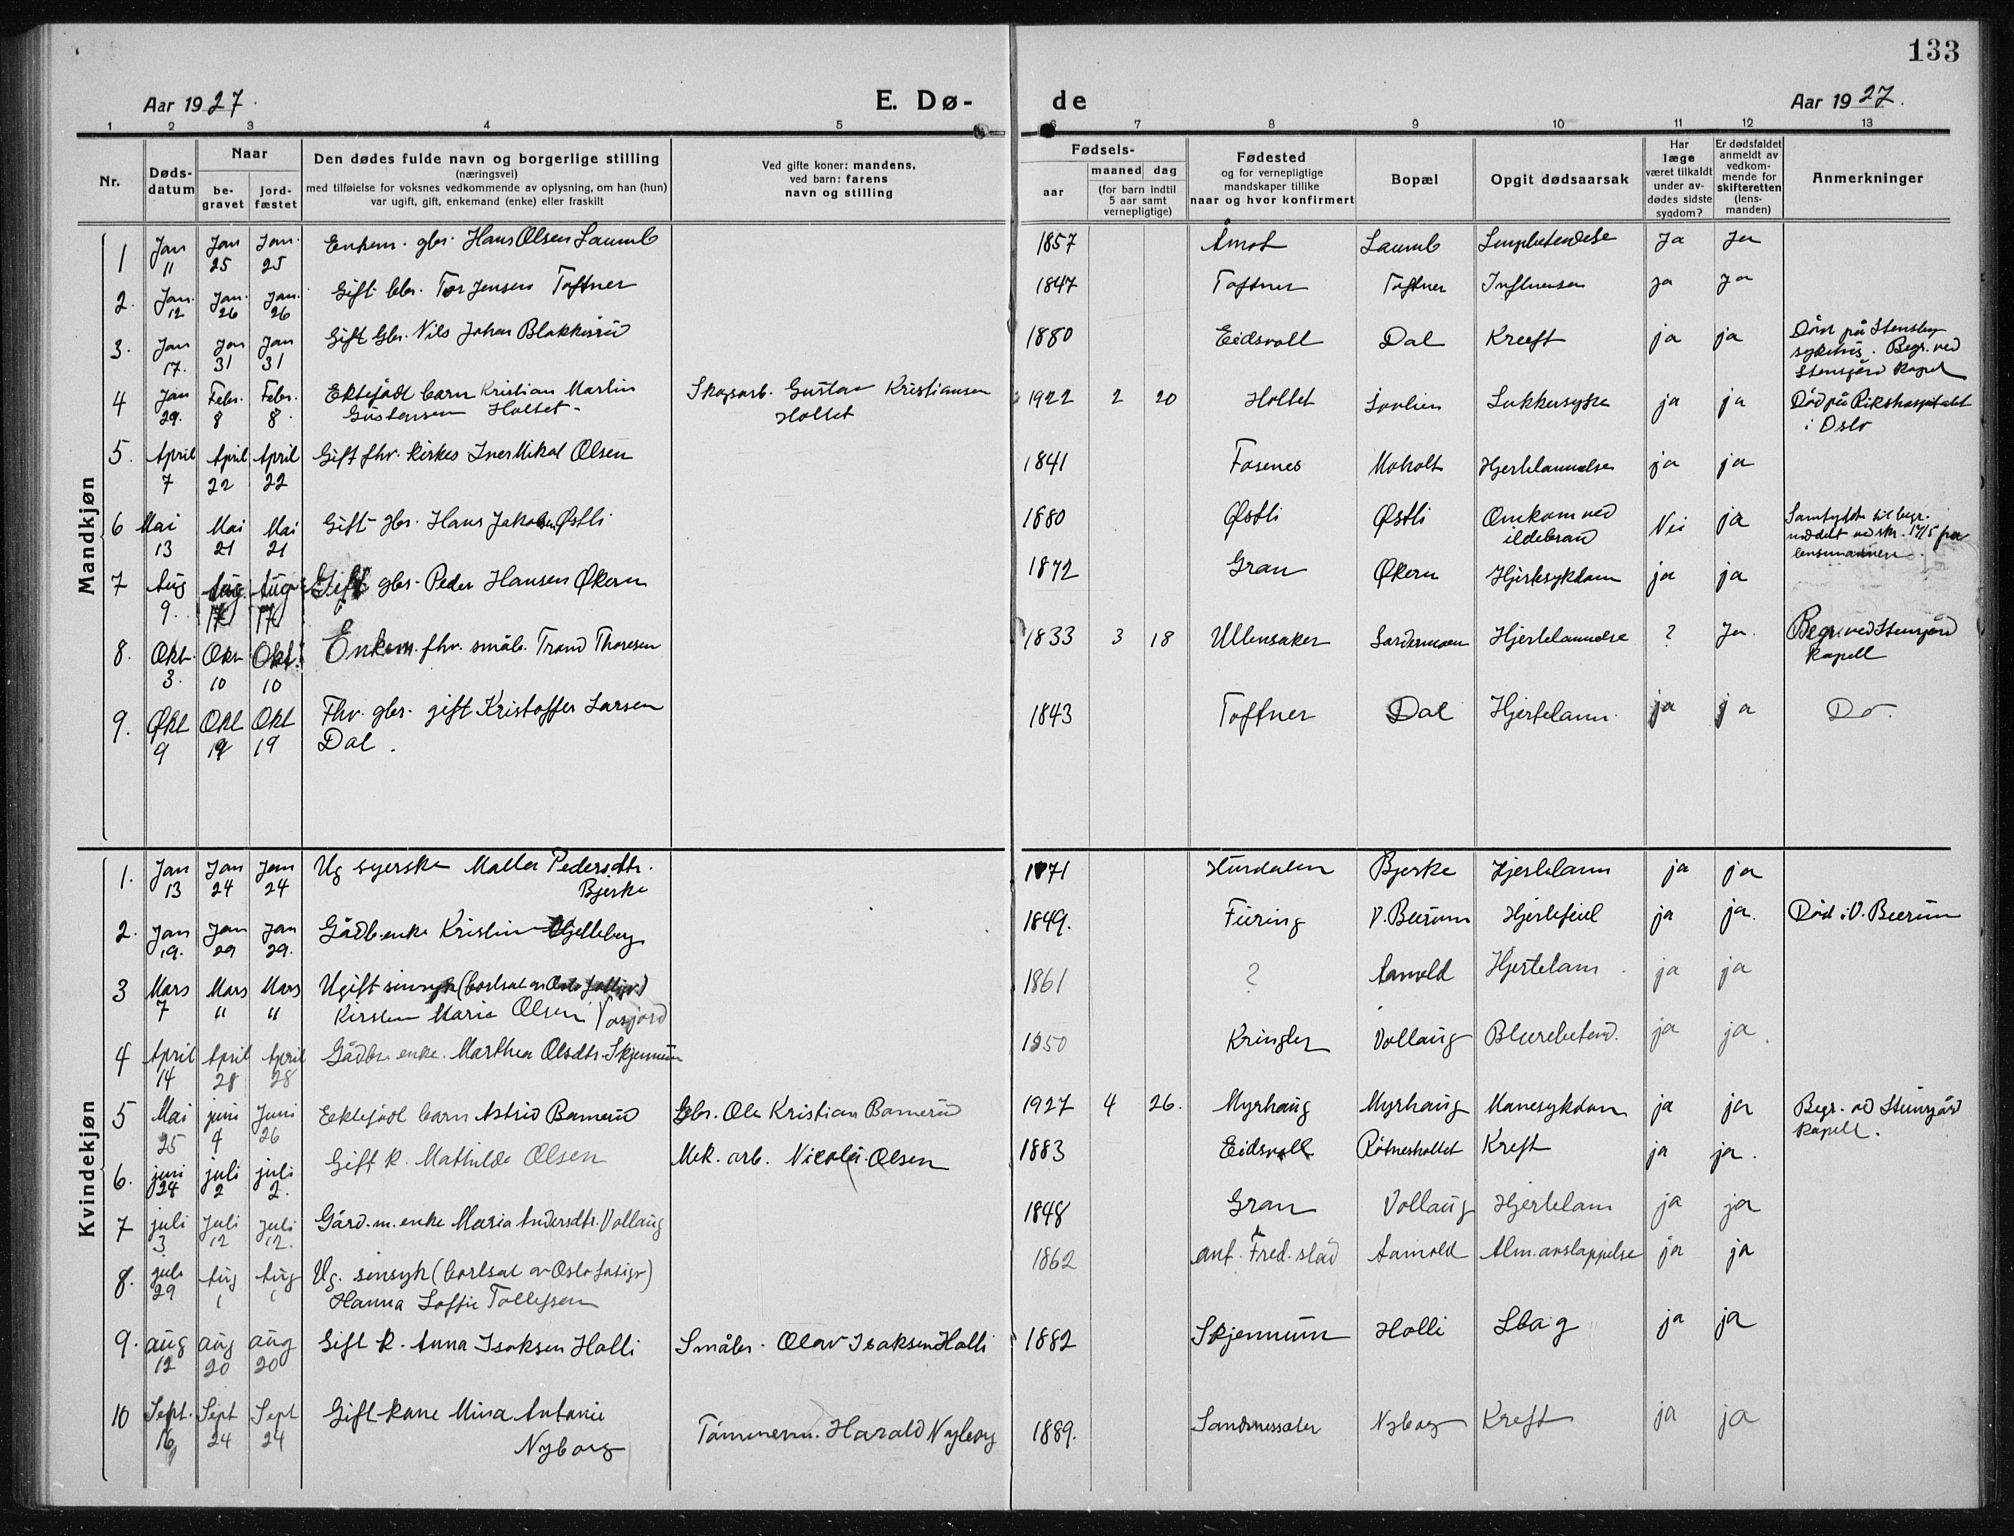 133
Aar 1927. E. Dø- de Aar 1927.
1 2 3 4 5 6 7 8 9 10 11 12 13
Nr. Døds-datum Naar be-gravet jord-fæstet
Den dødes fulde navn og borgerlige stilling
(næringsvei)
med tilføielse for voksnes vedkommende av oplysning, om han (hun)
var ugift, gift, enkemand (enke) eller fraskilt
Ved gifte koner: mandens,
ved barn: farens
navn og stilling
Fødsels-
aar maaned dag
(for barn indtil
5 aar samt
vernepligtige)
Fødested
og for vernepligtige
mandskaper tillike
naar og hvor konfirmert
Bopæl
Opgit dødsaarsak
Har
læge
været tilkaldt
under av-
dødes sidste
sygdom?
Er dødsfaldet
anmeldt av
vedkom-
mende for
skifteretten
(lens-
manden)
Anmerkninger
Mandkjøn
1 Jan 11 Jan 25 Jan. 25 Enkem. gbr. Hans Olsen 1857 Åmot Ja Ja
2. Jan. 12 Jan. 26 Jan. 26 Gift Gbr. Tor Jensen Toftner 1847 Toftner Toftner Influensa ja ja
3. Jan 17. Jan 31 Jan 31 Gift Gbr. Nils Johan Blakkisrud 1880 Eidsvoll Dal Kreeft ja ja Død på Stensby
sykehus. Begr. ved
Stensgård Kapel
4 Jan 29. Febr. 8 Febr. 8. Ektefødt barn Kristian Martin
Gustavsen Holtet. Skogsarb. Gustav Kristiansen
Holtet 1922 2 20 Holtet Sukkersyke ja ja Død på Rikshospitalet
i Oslo
5. April 7 April 22 April 22 Gift fhv. kirkes Iver Mikal Olsen 1841 Fosenes Moholt Hjertelammelse ja ja
6 Mai 13 Mai 21 Mai 21 Gift gbr. Hans Jakobsen Østli 1880 Østli Østli Omkom ved
ildebrand Nei ja Samtykke til begr.
meddelt ved skr. 17/5 fra
lensmannen.
7 Aug 9. Aug. 17 Aug 17 Gift gbr. Peder Hansen Økern 1872 Gran Økern Hjertesykdom ja ja
8. Okt. 3. Okt 10 Okt. 10 Enkem. fhv. småb. Trond Thoresen 1833 3 18 Ullensaker Hjertelammelse ? Ja. Begr. ved Stensgård
Kapell
9. Okt 9 Okt 19 Okt 19 Fhv. gbr. gift Kristoffer Larsen
Dal. 1843 Toftner Dal Hjertelam. ja ja Do.
Kvindekjøn
1. Jan 13 Jan 24 Jan 24 Ug syerske Malla Pedersdtr.
Bjerke 1871 Hurdalen Bjerke Hjertelam ja ja
2. Jan 19. Jan 29 Jan 29. Gådb. enke Kristin Gjelleberg 1849. Feiring V. Bærum Hjertefeil ja ja. Død i V. Bærum
3 Mars 7 Mars " Mars " Ugift sinsyk (bortsat av Oslo fattigv.)
Kirsten Marie Olsen 1861 ? Aamold Hjertelam. ja ja
4 April 14 April 28 April 28 Gådbr. enke. Marthea Olsdtr. Skjennum 1850 Kringler Vollaug Blærebetend. ja ja.
5 Mai 25 juni 4 Juni 26 Ektefødt barn Astrid Bamerud Gbr. Ole Kristian Bamerud 1927 4 26. Myrhaug Myrhaug Mavesykdom ja ja Begr. ved Stensgård
Kapell.
6. juni 28 juli 2 juli 2. Gift k. Mathilde Olsen Mek. arb. Nicolai Olsen 1883 Eidsvoll Røtnesholtet Kreft ja ja.
7 juli 3 Juli 12 Juli 12. Gård. m. enke Maria Andersdtr. Vollaug 1848 Gran Vollaug Hjertelam ja ja
8. juli 29 Aug 1 Aug 1 Ug. sinsyk (bortsat av Oslo fatigv)
Hanna Soffie Tollefsen 1862 ant. Fred.stad Aamold Alm. avslappelse ja ja
9. aug 12 aug 20 aug 20 Gift k. Anna Isaksen Holli Småbr. Olav Isaksen Holli 1882 Skjennum Holli Slag ja ja
10 Sept. 16 Sept 24 Sept 24 Gift kone Mina Antonie
Nyborg Tømmerm. Harald Nyborg 1889. Sandnessæter Nyborg Kreft ja ja